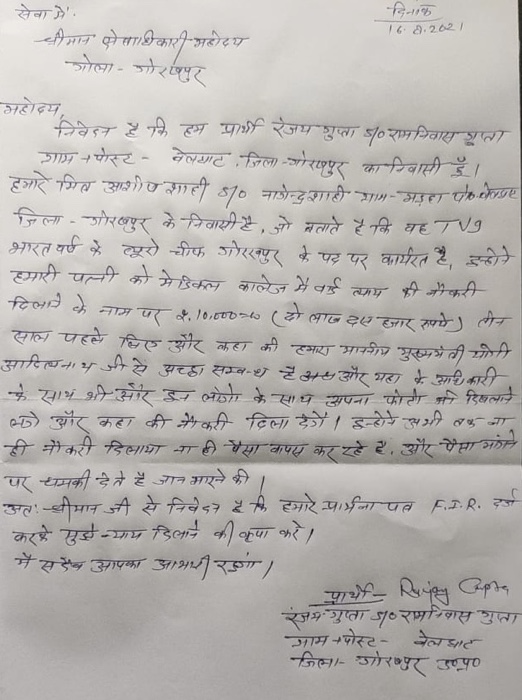 सेवा में.
दिनांक
16.8.2021
श्रीमान क्षेत्राधिकारी महोदय
गोला - गोरखपुर
महोदय,
निवेदन है कि हम प्रार्थी रंजय गुप्ता S/o रामनिवास गुप्ता
ग्राम+पोस्ट - बेलघाट, जिला-गोरखपुर का निवासी हूँ।
हमारे मित्र आशीष शाही S/o नागेन्द्र शाही ग्राम - पो० बेलघाट
जिला - गोरखपुर के निवासी है, जो बताते है कि वह TV9
भारत वर्ष के ब्यूरो चीफ गोरखपुर के पद पर कार्यरत है, इन्होने
हमारी पत्नी को मेडिकल कालेज में वार्ड ब्याय की नौकरी
दिलाने के नाम पर 2,10,000=00 (दो लाख दस हजार रूपये) तीन
साल पहले लिए और कहा की हमारा माननीय मुख्यमंत्री योगी
आदित्यनाथ जी से अच्छा सम्बन्ध है और यहा के अधिकारी
के साथ भी और इन लोगो के साथ अपना फोटो भी दिखलाने
लगे और कहा की नौकरी दिला देगें। इन्होने अभी तक ना
ही नौकरी दिलाया ना ही पैसा वापस कर रहे है, और पैसा मांगने
पर धमकी देते है जान मारने की।
अतः श्रीमान जी से निवेदन है कि हमारे प्रार्थना पत्र F.I.R. दर्ज
करके मुझे न्याय दिलाने की कृपा करे।
मैं सदैव आपका आभारी रहूंगा।
प्रार्थी - Ranjay Gupta
रंजय गुप्ता S/o रामनिवास गुप्ता
ग्राम+पोस्ट - बेलघाट
जिला - गोरखपुर उ०प्र०